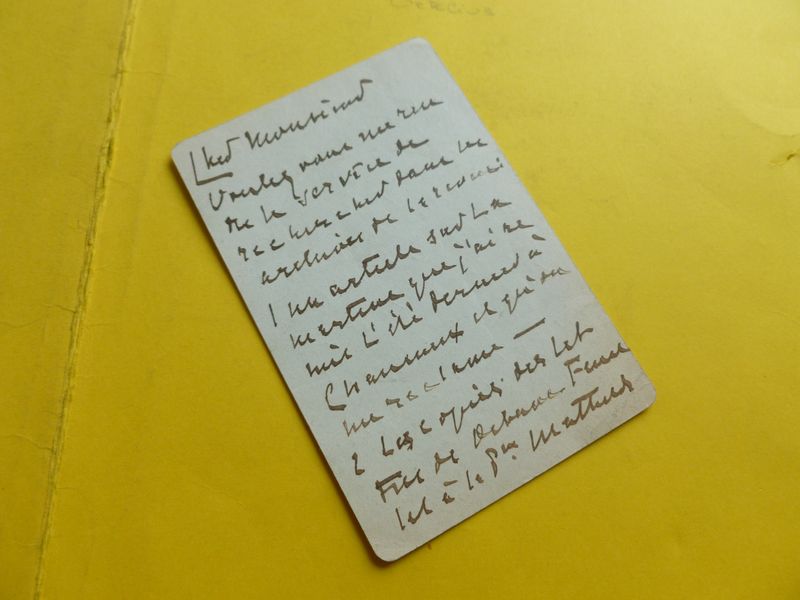 Cher Monsieur
Voulez vous me ren
dre le service de
rechercher dans les
archives de
1 un article sur La
martine que j'ai re
mis l'été dernier à
Charavay et qu'on
me réclame —
2 Les copies des let
tres de
let à la Pss Mathilde